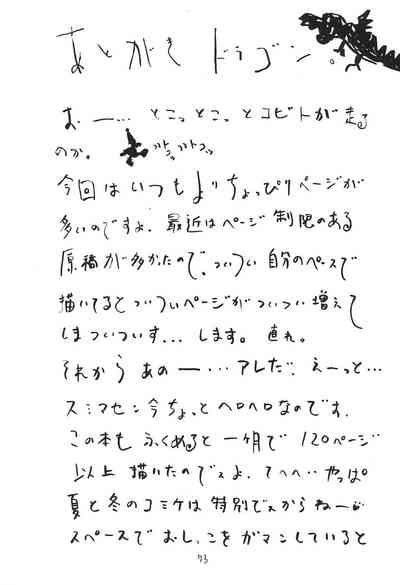 あとがきドラゴン。
お一… とこっとこっとコビトが走る
のか。 トコットコッ
今回はいつもよりちょっぴりページが
多いのですよ。最近はページ制限のある
原稿が多かたので、ついつい自分のペースで
描いてるとついついページがついつい増えて
しまついついす…します。直れ。
それからあのー…アレだ、えーっと…
スミマセン今ちょっとヘロヘロなのです。
この本もふくめると一ヶ月で120ページ
以上描いたのでスよ。てへへ…やっぱ
夏と冬のコミケは特別でスからねー
スペースでおしっこをガマンしていると
73